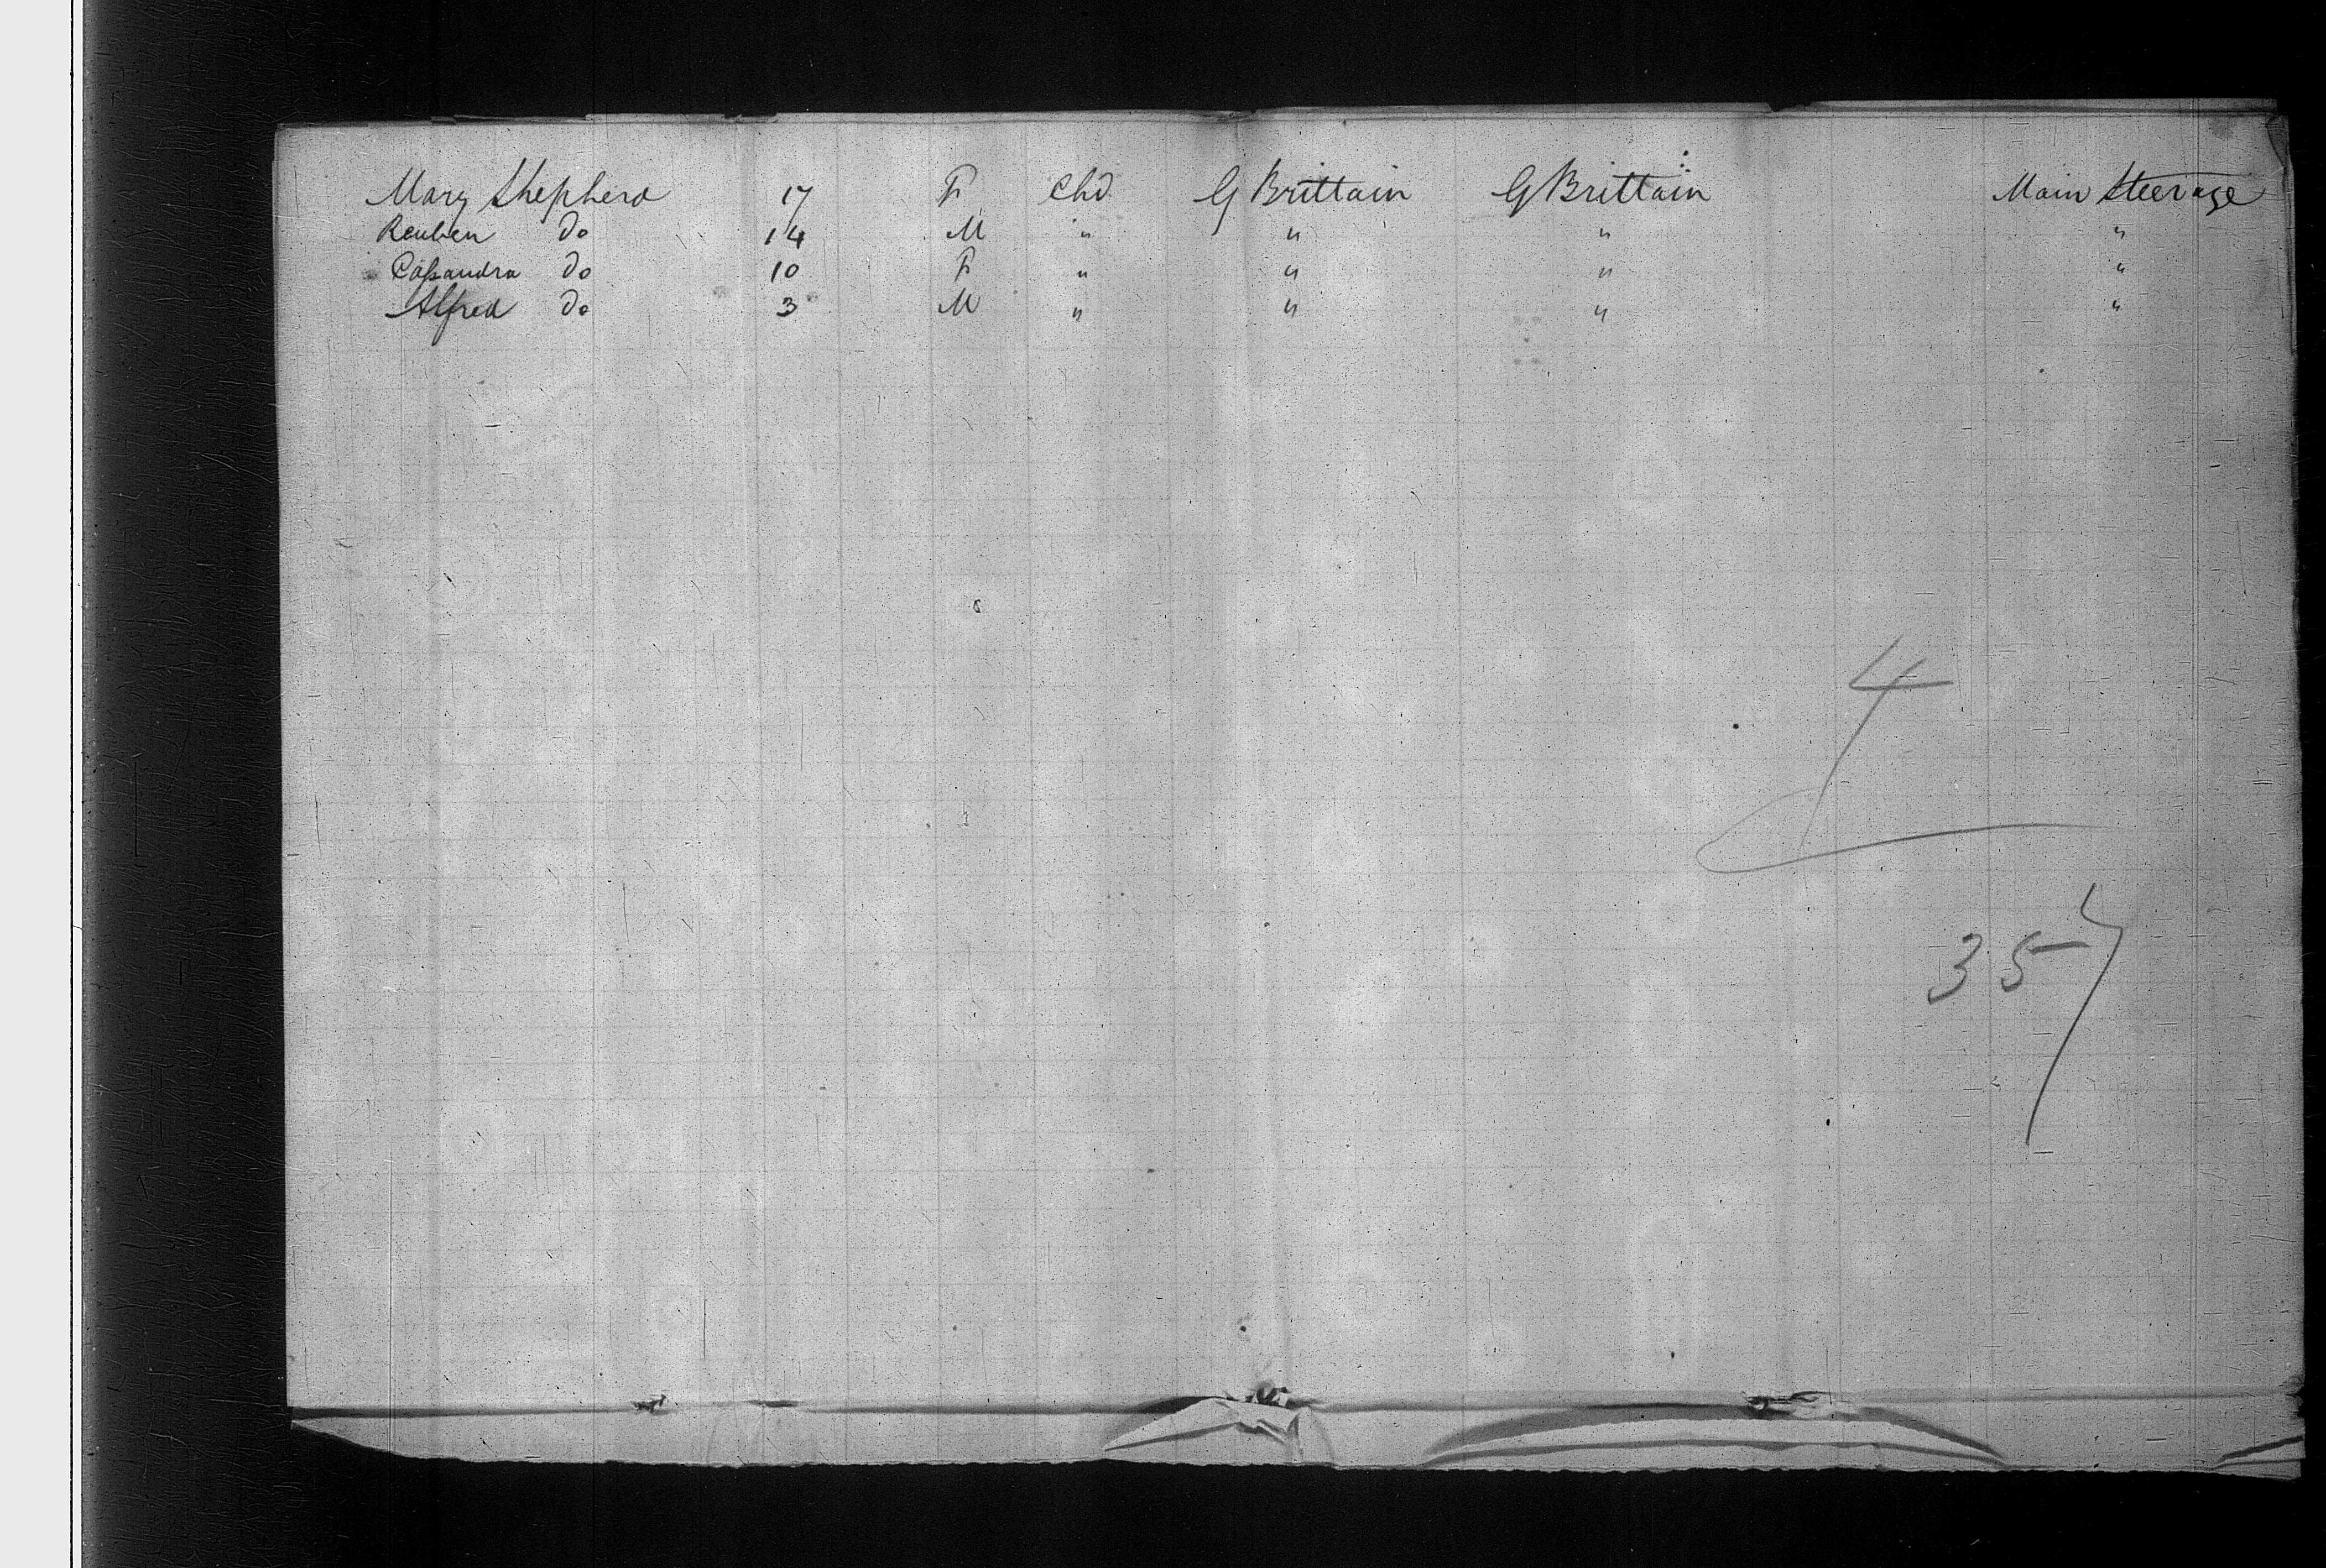 Mary Shepherd 17 F Chd G Brittain G Brittain Main Steerage
Reuben do 14 M " " " "
Cassandra do 10 F " " " "
Alfred do 3 M " " " "
4
357